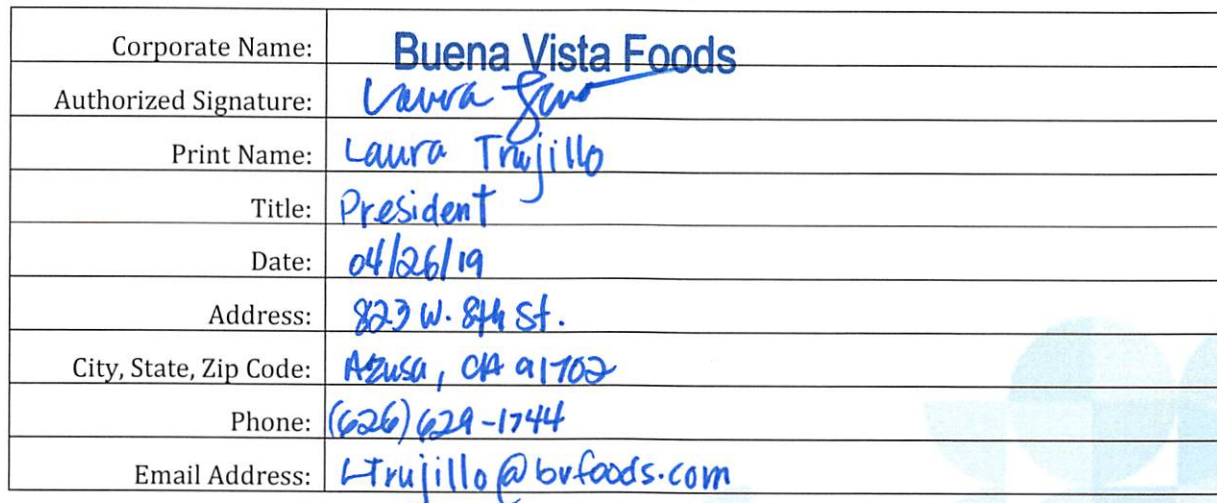 Corporate Name: Buena Vista Foods
Authorized Signature: Laura
Print Name: Laura Trujillo
Title: President
Date: 04/26/19
Address: 823 W. 8th St.
City, State, Zip Code: Azusa, CA 91702
Phone: (626) 629-1744
Email Address: LTrujillo@bvfoods.com